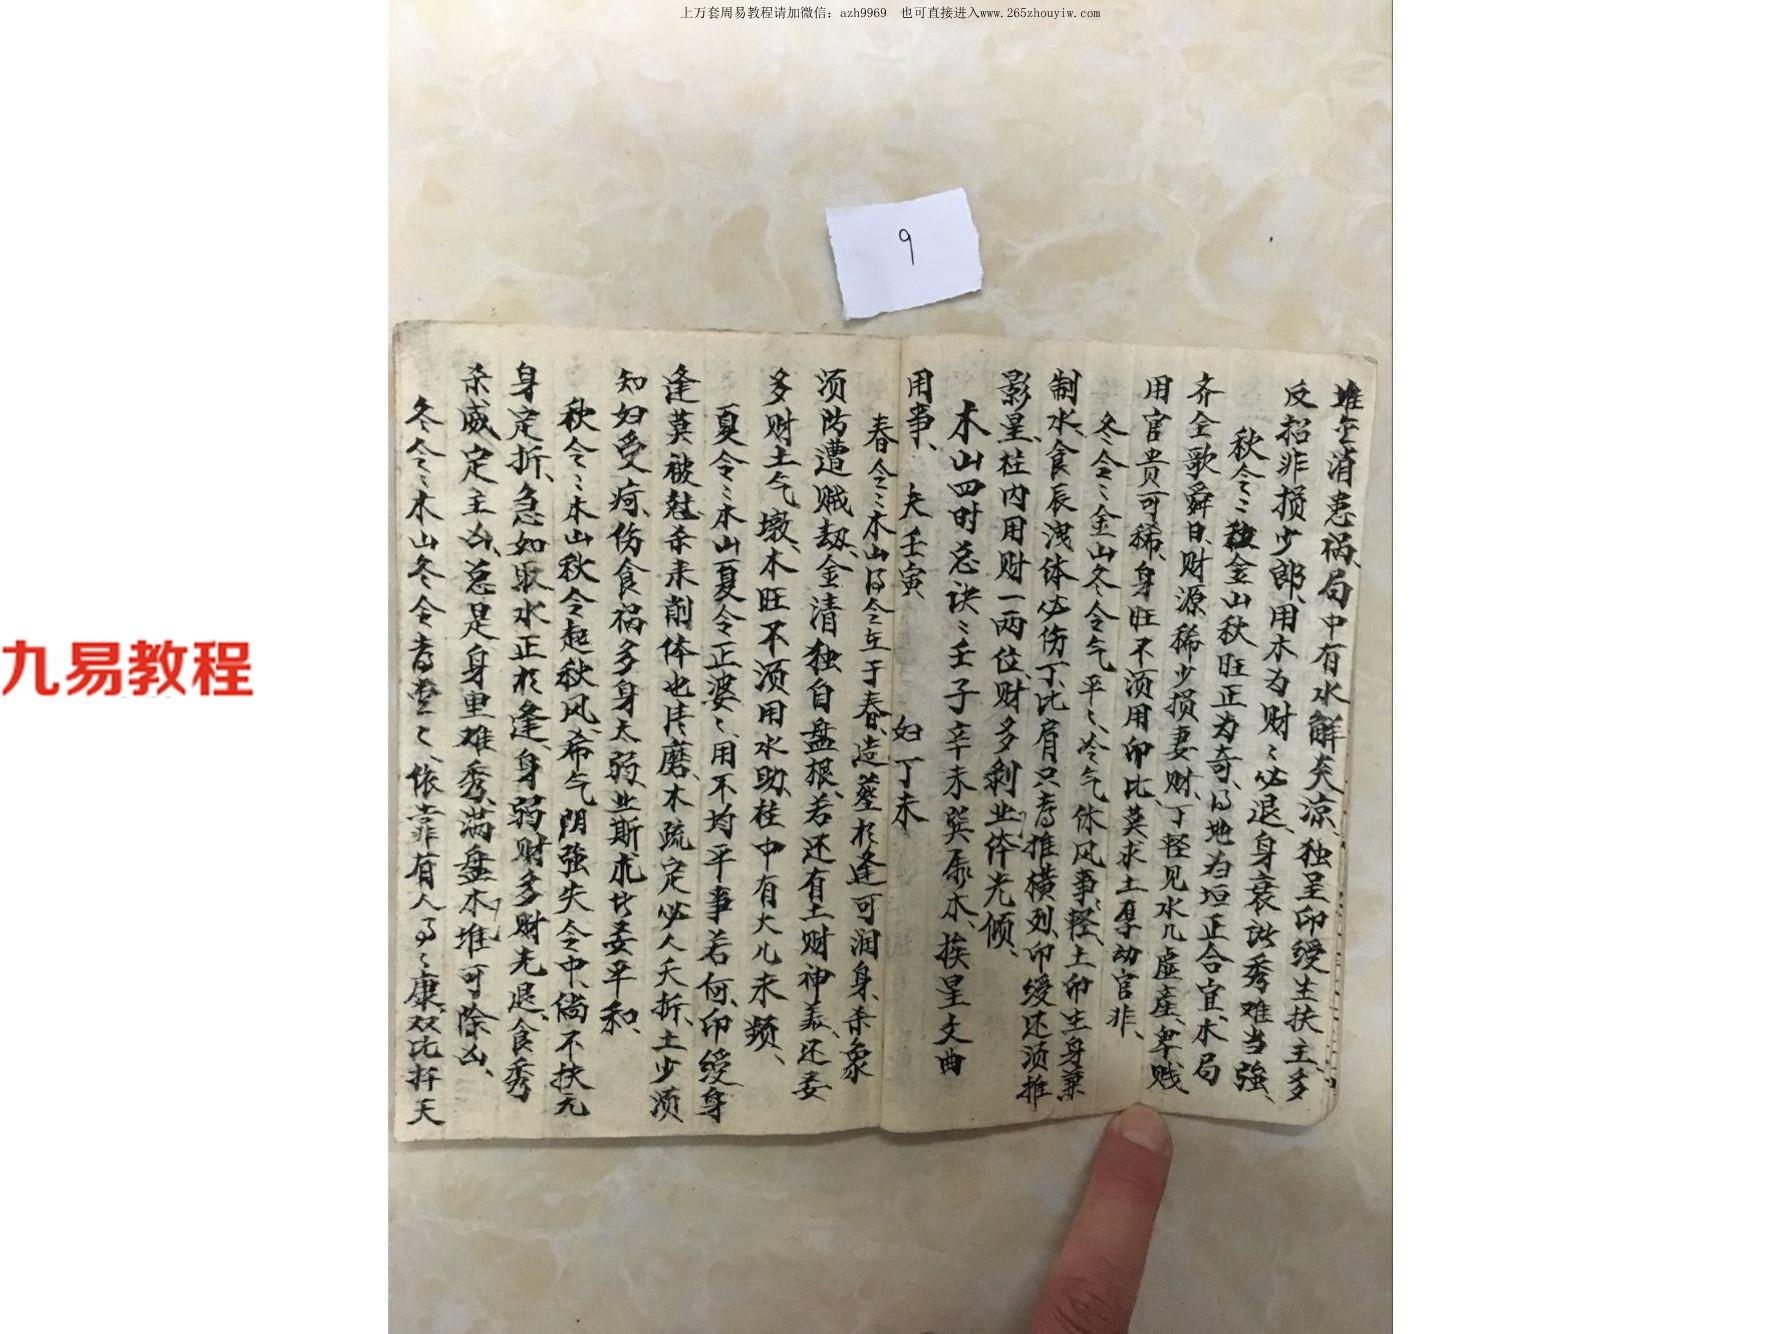 上万套周易教程请加微信：azh9969　也可直接进入www.265zhouyiw.com
9
九易教程
堆仝消患祸、局中有水解炎凉、独呈印绶生扶主、多
反招非损少郎、用木为财〻必退、身衰洩秀难当强、
秋令〻金山秋旺正为奇、得地为垣正合宜、木局
齐全歌舜日、财源稀少损妻财、丁轻见水几虚产、卑贱
用官贵可稀、身旺不须用印比、莫求土厚劫官非、
冬令〻金山冬令气平〻、冷气休风事轻、土印生身兼
制水、食辰洩体必伤丁、比肩只为推横列、印绶还须推
影星、柱内用财一两位、财多剥业体先倾、
木山四时总诀〻壬子辛未巽属木、挨星文曲
用事、 夫壬寅 妇丁未
春令〻木山得令至于春、造葬于逢可润身、杀象
须防遭贼劫、金清独自盘根、若还有土财神美、还要
多财土气墩、木旺不须用水助、柱中有火儿未频、
夏令〻木山夏令正婆〻、用不均平事若何、印绶身
逢莫被克、杀来削体也侍磨、木疏定必人夭折、土少须
知妇受疴、伤食祸多身太弱、业斯求比要平和、
秋令〻木山秋令起秋风、希气阴强失令中、倘不扶元
身定折、急如取水正于逢、身弱财多财先退、食秀
杀威定主凶、总是身里难秀、满盘木堆可除凶、
冬令〻木山冬令为〻、依靠有人得〻康、双比拜天